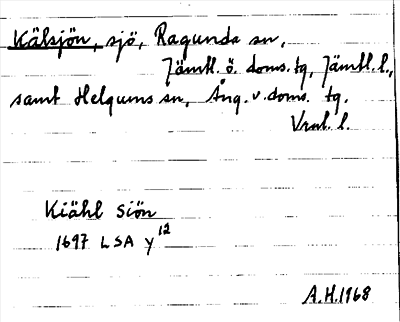 Kälsjön, sjö, Ragunda sn,
Jämtl. ö. doms. tg, Jämtl. l.,
samt Helgums sn, Ång. v. doms. tg.
Vnl. l.
Kiähl Siön
1697 LSA Y 12
A.H. 1968